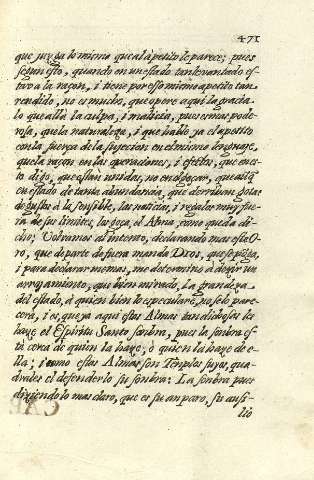 471
que juzga lo mismo que al apetito le parece; pues
segun esto, quando en un estado tan levantado es-
tuvo a la razon, i tiene por esso mismo apetito tan
rendido, no es mucho, que opere aqui la gracia
lo que allà la culpa, i malicia, pues es mas pode-
rosa, que la naturaleza, i que hable ya el apetito
con la fuerça de la sujecion en el mismo lenguaje,
que la razon en las operaciones, i efetos, que en es-
to digo, que estàn unidos, no en el pecar, que assi
en estado de tanta abundancia, que derriban gotas
de gustos a lo sensible, las noticias, i regalos muy fue-
ra de sus limites, las goça el Alma, como queda di-
cho; Volvamos al intento, declarando mas este O-
ro, que de parte de fuera manda Dios, que se ponga,
i para declarar me mas, me determino à deçir un
arrojamiento, que bien mirado, la grandeza
del estado, à quien bien lo especulare, no se lo pare-
cerà, i es, que ya aqui estas Almas tan dichosas les
haze el Espiritu Santo sonbra, pues la sonbra es-
tà cerca de quien la haze, ò quien la haze de e-
lla; i como estas Almas son Templos suyos, qua-
drales el defenderlo su sonbra: La sonbra pues
diçiendolo mas claro, que es su amparo, su ausi-
lio